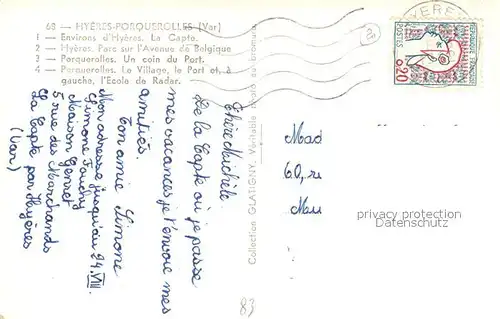 68 — HYÈRES-PORQUEROLLES (Var)
1 — Environs d'Hyères. La Capte.
2 — Hyères. Parc sur l'Avenue de Belgique
3 — Porquerolles. Un coin du Port.
4 — Porquerolles. Le Village, le Port et, à
gauche, l'Ecole de Radar.
2
HYERES
REPUBLIQUE FRANÇAISE
POSTES
0,20
Collection GLATIGNY. Véritable photo au bromure
Chère Michèle
De la Capte où je passe
mes vacances je t'envoie mes
amitiés.
Ton amie Simone
Mon adresse jusqu'au 24. VIII
Simone
Maison Genret
5 rue des Marchands
La Capte par Hyères
(Var)
Mad
60, ru
Meu
privacy protection
DATENSCHUTZ
83